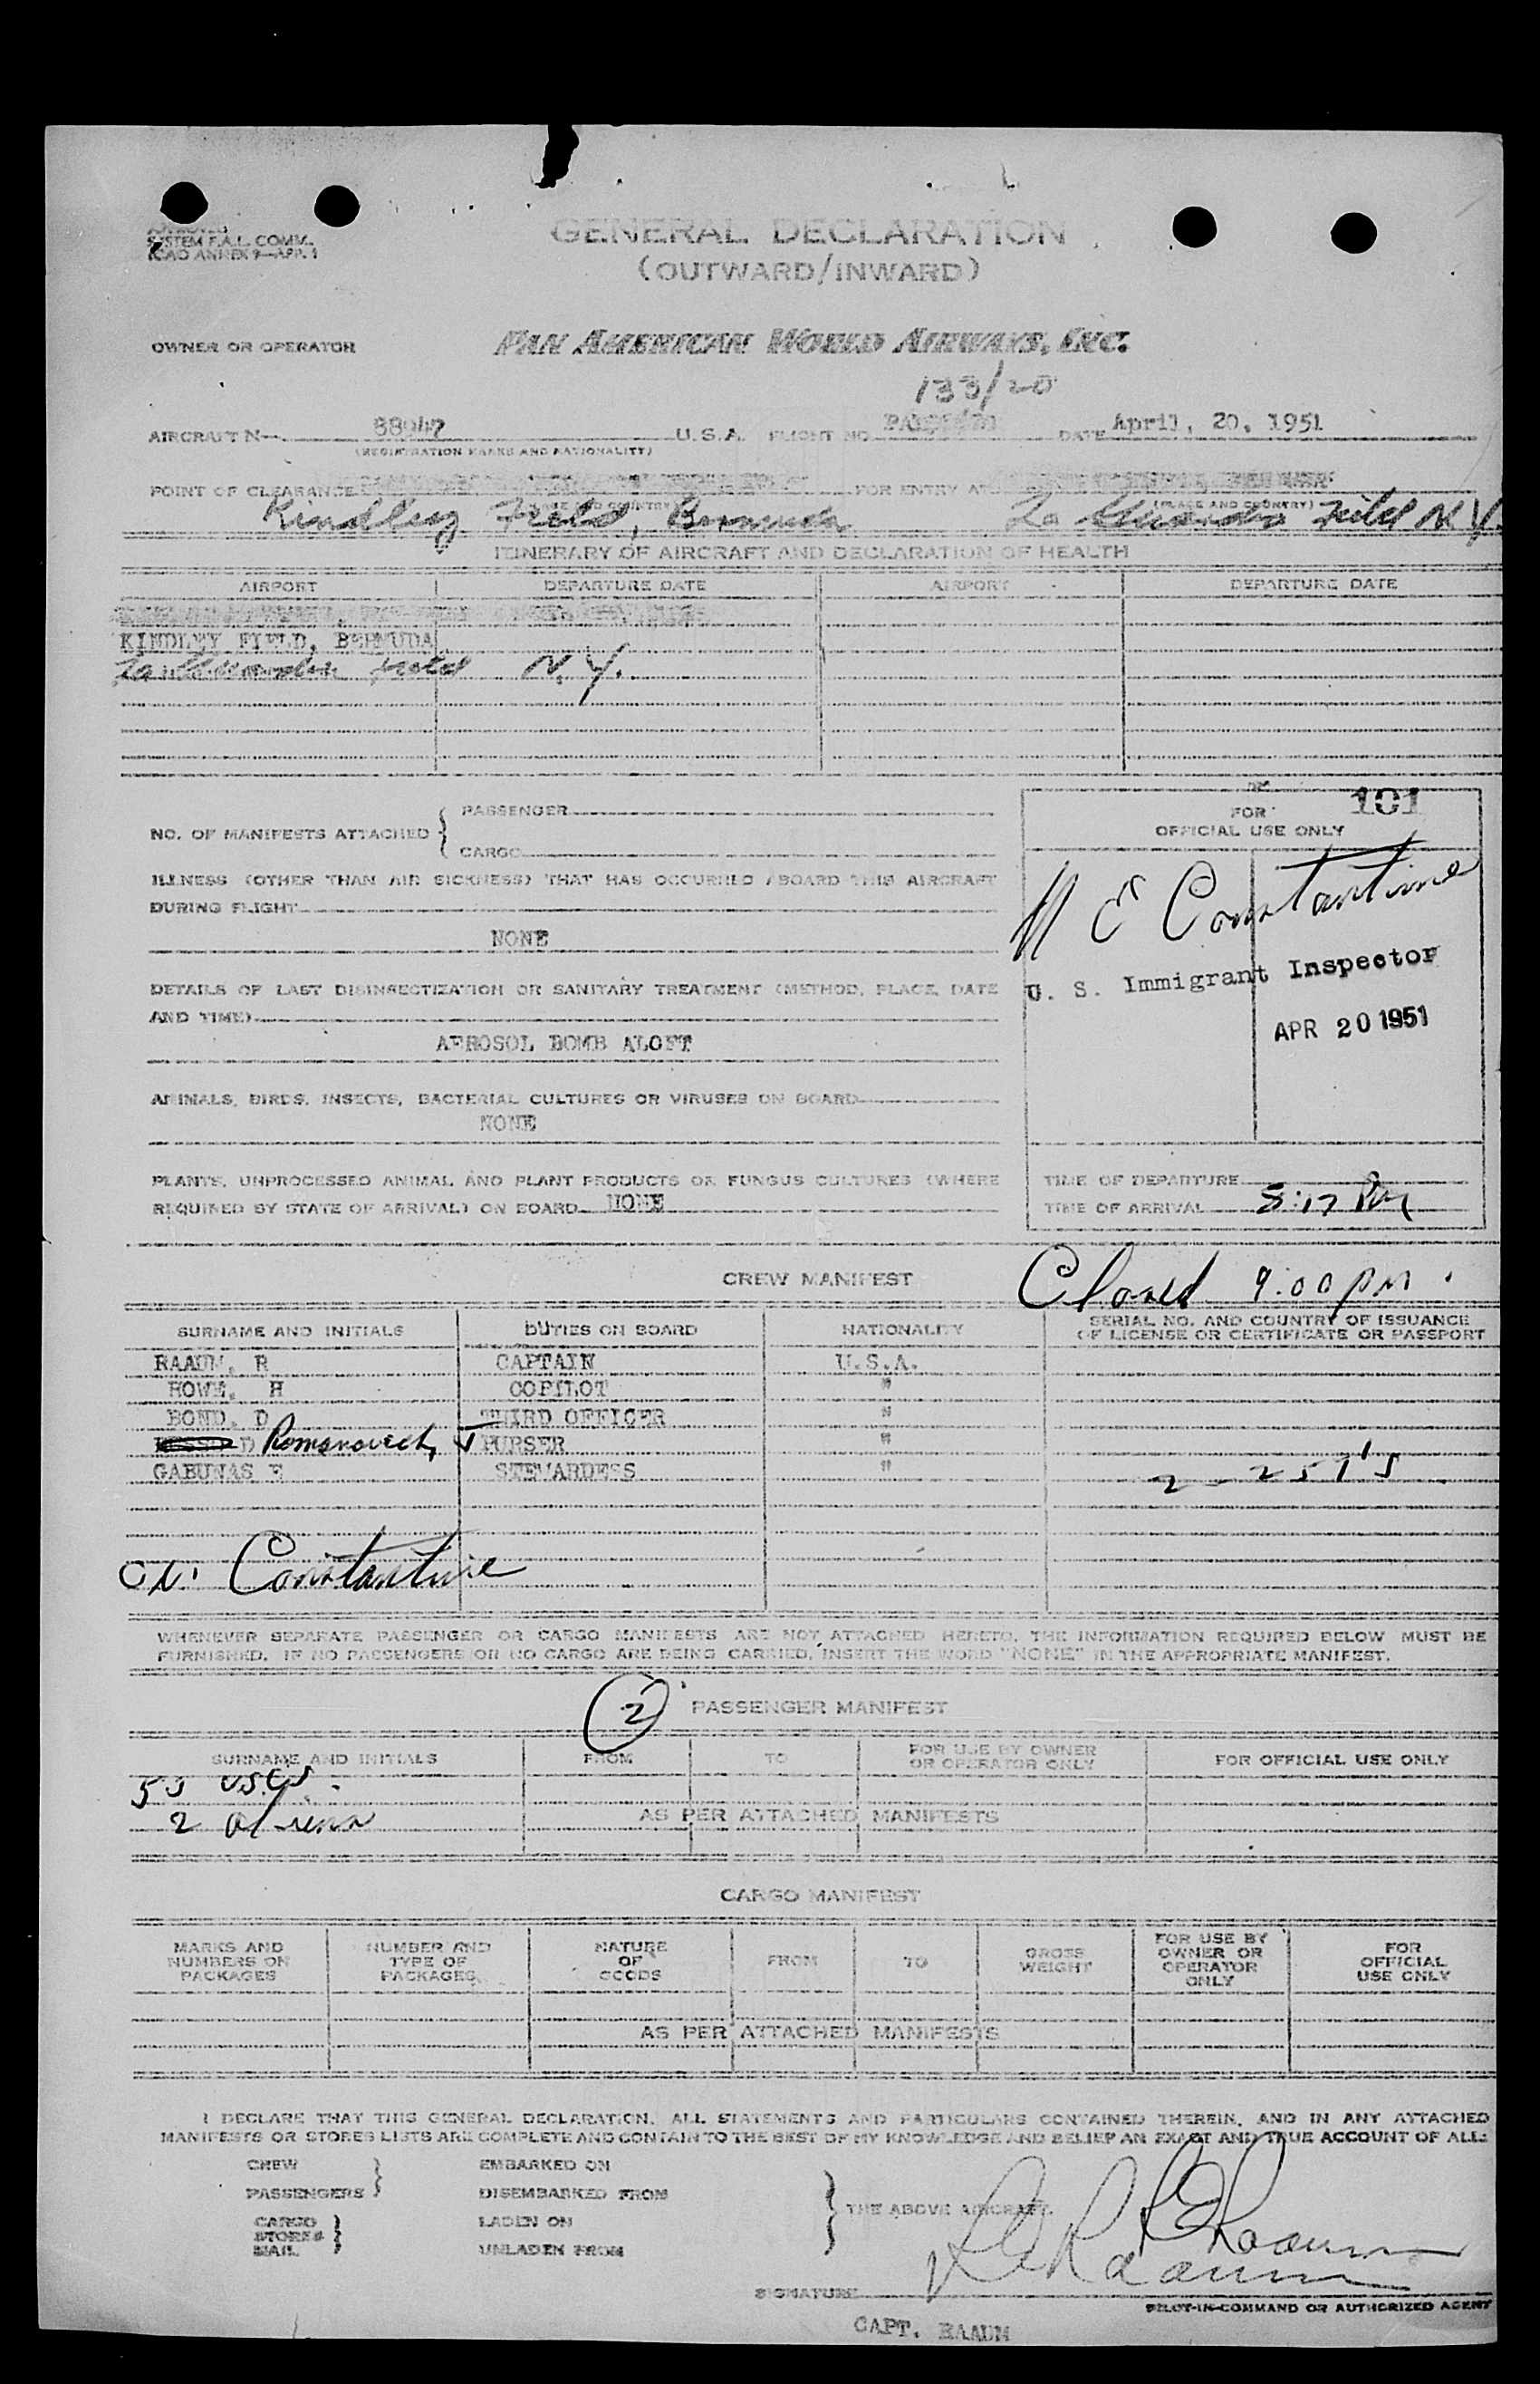 SYSTEM F.A.L. COMM.
ICAO ANNEX 9—APP. 1
GENERAL DECLARATION
(OUTWARD/INWARD)
OWNER OR OPERATOR PAN AMERICAN WORLD AIRWAYS, INC.
133/20
AIRCRAFT N— 88947 U.S.A. FLIGHT NO. DATE April, 20, 1951
(REGISTRATION MARKS AND NATIONALITY)
POINT OF CLEARANCE FOR ENTRY AT
(PLACE AND COUNTRY)
Kindley Field, Bermuda La Guardia Field N.Y.
ITINERARY OF AIRCRAFT AND DECLARATION OF HEALTH
AIRPORT DEPARTURE DATE AIRPORT DEPARTURE DATE
KINDLEY FIELD, BERMUDA
La Guardia Field N.Y.
NO. OF MANIFESTS ATTACHED { PASSENGER
CARGO
ILLNESS (OTHER THAN AIR SICKNESS) THAT HAS OCCURRED ABOARD THIS AIRCRAFT
DURING FLIGHT
NONE
DETAILS OF LAST DISINSECTIZATION OR SANITARY TREATMENT (METHOD, PLACE, DATE
AND TIME)
AEROSOL BOMB ALOFT
ANIMALS, BIRDS, INSECTS, BACTERIAL CULTURES OR VIRUSES ON BOARD
NONE
PLANTS, UNPROCESSED ANIMAL AND PLANT PRODUCTS OR FUNGUS CULTURES (WHERE
REQUIRED BY STATE OF ARRIVAL) ON BOARD NONE
FOR 101
OFFICIAL USE ONLY
N E Constantine
U. S. Immigrant Inspector
APR 20 1951
TIME OF DEPARTURE
TIME OF ARRIVAL 8:17 PM
Closed 9:00 pm.
CREW MANIFEST
SURNAME AND INITIALS DUTIES ON BOARD NATIONALITY SERIAL NO. AND COUNTRY OF ISSUANCE
OF LICENSE OR CERTIFICATE OR PASSPORT
RAAUM, R CAPTAIN U.S.A.
HOWE, H COPILOT "
BOND, D THIRD OFFICER "
D Romanovech, J PURSER "
GABUNAS E STEWARDESS " 2 - 257's
Constantine
WHENEVER SEPARATE PASSENGER OR CARGO MANIFESTS ARE NOT ATTACHED HERETO, THE INFORMATION REQUIRED BELOW MUST BE
FURNISHED. IF NO PASSENGERS OR NO CARGO ARE BEING CARRIED, INSERT THE WORD "NONE" IN THE APPROPRIATE MANIFEST.
2 PASSENGER MANIFEST
SURNAME AND INITIALS FROM TO FOR USE BY OWNER
OR OPERATOR ONLY FOR OFFICIAL USE ONLY
USCs
2 aliens AS PER ATTACHED MANIFESTS
CARGO MANIFEST
MARKS AND
NUMBERS ON
PACKAGES
NUMBER AND
TYPE OF
PACKAGES
NATURE
OF
GOODS
FROM TO GROSS
WEIGHT
FOR USE BY
OWNER OR
OPERATOR
ONLY
FOR
OFFICIAL
USE ONLY
AS PER ATTACHED MANIFESTS
I DECLARE THAT THIS GENERAL DECLARATION, ALL STATEMENTS AND PARTICULARS CONTAINED THEREIN, AND IN ANY ATTACHED
MANIFESTS OR STORES LISTS ARE COMPLETE AND CONTAIN TO THE BEST OF MY KNOWLEDGE AND BELIEF AN EXACT AND TRUE ACCOUNT OF ALL:
CREW EMBARKED ON
PASSENGERS } DISEMBARKED FROM
THE ABOVE AIRCRAFT.
CARGO LADEN ON
STORES }
MAIL UNLADEN FROM
R E Raaum
R E Raaum
SIGNATURE
PILOT-IN-COMMAND OR AUTHORIZED AGENT
CAPT. RAAUM